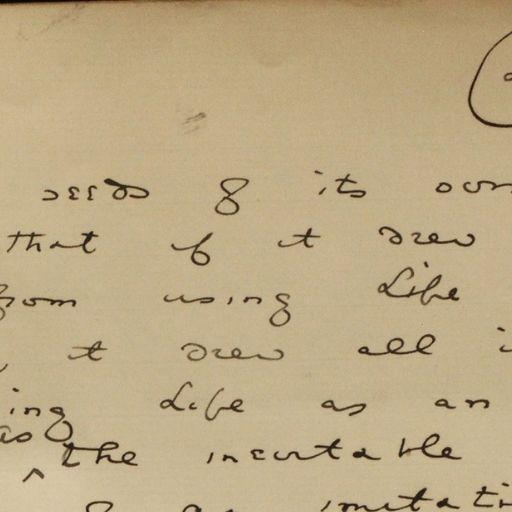 seeds of its own
that if it drew
from using Life
it drew all
ing Life as an
as
the inevitable
of an imitati